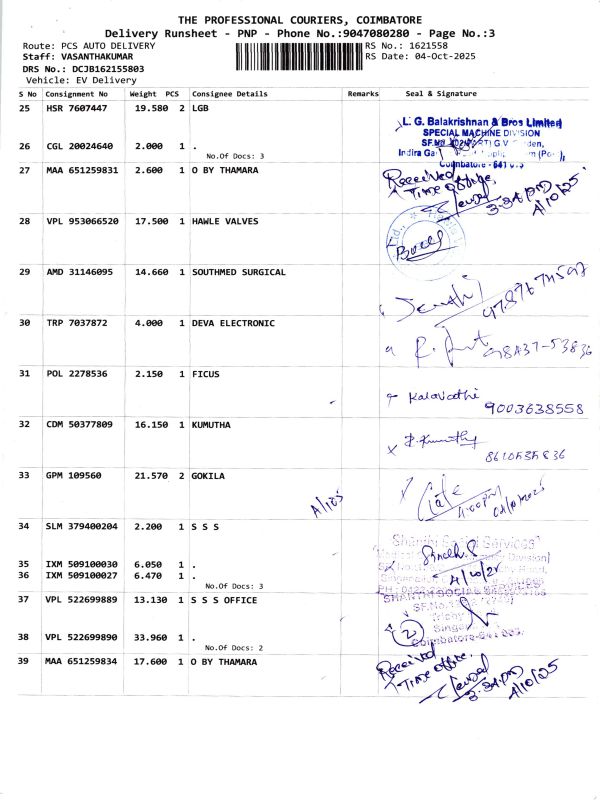 THE PROFESSIONAL COURIERS, COIMBATORE
Delivery Runsheet - PNP - Phone No.:9047080280 - Page No.:3
Route: PCS AUTO DELIVERY
RS No.: 1621558
Staff: VASANTHAKUMAR
RS Date: 04-Oct-2025
DRS No.: DCJB162155803
Vehicle: EV Delivery
S No Consignment No Weight PCS Consignee Details Remarks Seal & Signature
25 HSR 7607447 19.580 2 LGB
L. G. Balakrishnan & Bros Limited
SPECIAL MACHINE DIVISION
26 CGL 20024640 2.000 1 .
No.Of Docs: 3
Coimbatore - 641
27 MAA 651259831 2.600 1 O BY THAMARA
Received
Time office,
4/10/25
28 VPL 953066520 17.500 1 HAWLE VALVES
29 AMD 31146095 14.660 1 SOUTHMED SURGICAL
30 TRP 7037872 4.000 1 DEVA ELECTRONIC
31 POL 2278536 2.150 1 FICUS
Kalavathi
9003638558
32 CDM 50377809 16.150 1 KUMUTHA
33 GPM 109560 21.570 2 GOKILA
34 SLM 379400204 2.200 1 S S S
Shanthi Social Services
35 IXM 509100030 6.050 1 .
36 IXM 509100027 6.470 1 .
No.Of Docs: 3
37 VPL 522699889 13.130 1 S S S OFFICE
SHANTHI SOCIAL SERVICES
2
38 VPL 522699890 33.960 1 .
No.Of Docs: 2
Coimbatore-641 005.
39 MAA 651259834 17.600 1 O BY THAMARA
Received
Time office,
4/10/25